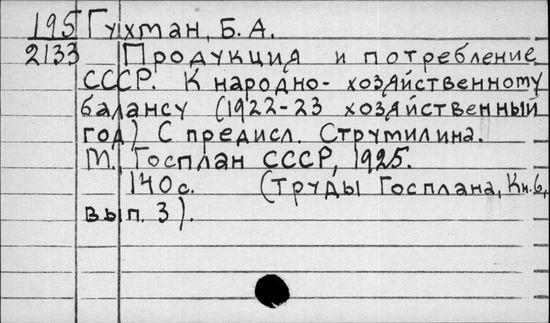 195 Гухман, Б. А.
2133 Продукция и потребление
СССР. К народно-хозяйственному
балансу (1922-23 хозяйственный
год) С предисл. Струмилина.
М., Госплан СССР, 1925.
140 с. (Труды Госплана, Кн. 6,
вып. 3).